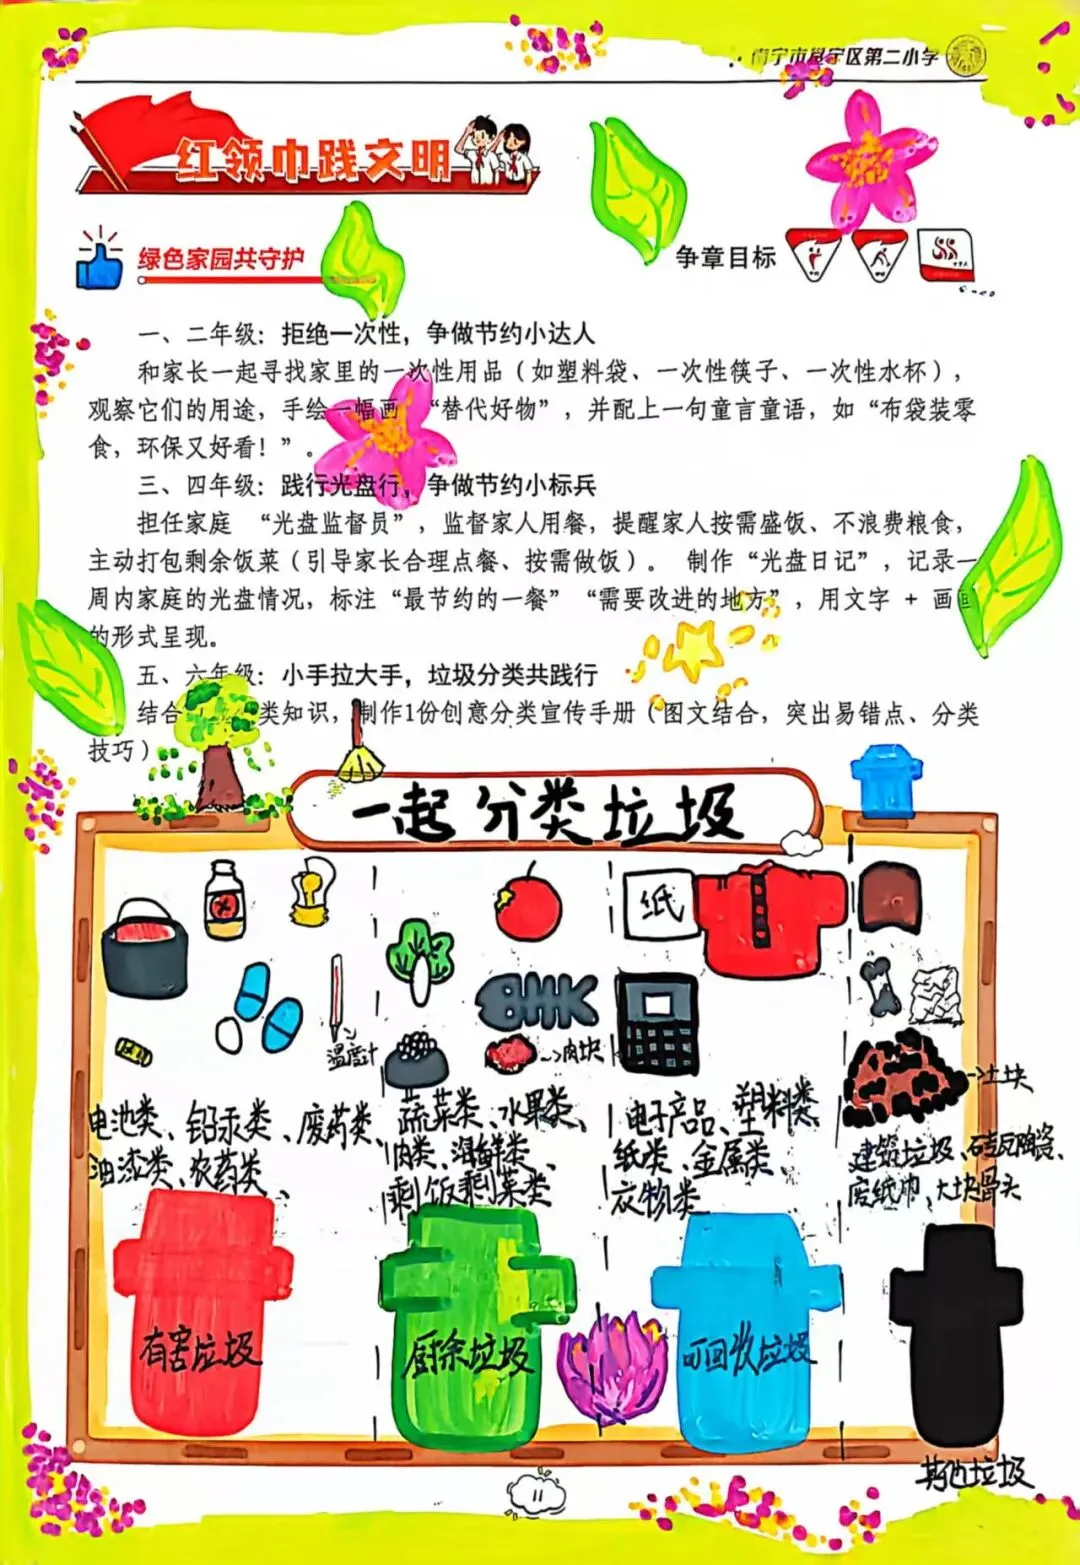 南宁市邕宁区第二小学
红领巾践文明
绿色家园共守护
争章目标
一、二年级：拒绝一次性，争做节约小达人
和家长一起寻找家里的一次性用品（如塑料袋、一次性筷子、一次性水杯），
观察它们的用途，手绘一幅画 “替代好物”，并配上一句童言童语，如“布袋装零
食，环保又好看！”。
三、四年级：践行光盘行，争做节约小标兵
担任家庭 “光盘监督员”，监督家人用餐，提醒家人按需盛饭、不浪费粮食，
主动打包剩余饭菜（引导家长合理点餐、按需做饭）。 制作“光盘日记”，记录一
周内家庭的光盘情况，标注“最节约的一餐”“需要改进的地方”，用文字 + 画画
的形式呈现。
五、六年级：小手拉大手，垃圾分类共践行
结合 类知识，制作1份创意分类宣传手册（图文结合，突出易错点、分类
技巧）
一起分类垃圾
纸
温度计
->肉块
->土块
电池类、铅汞类、废药类、
油漆类、农药类、
蔬菜类、水果类、
肉类、海鲜类、
剩饭剩菜类
电子产品、塑料类、
纸类、金属类、
衣物类
建筑垃圾、砖瓦陶瓷、
废纸巾、大块骨头
有害垃圾
厨余垃圾
可回收垃圾
其他垃圾
11